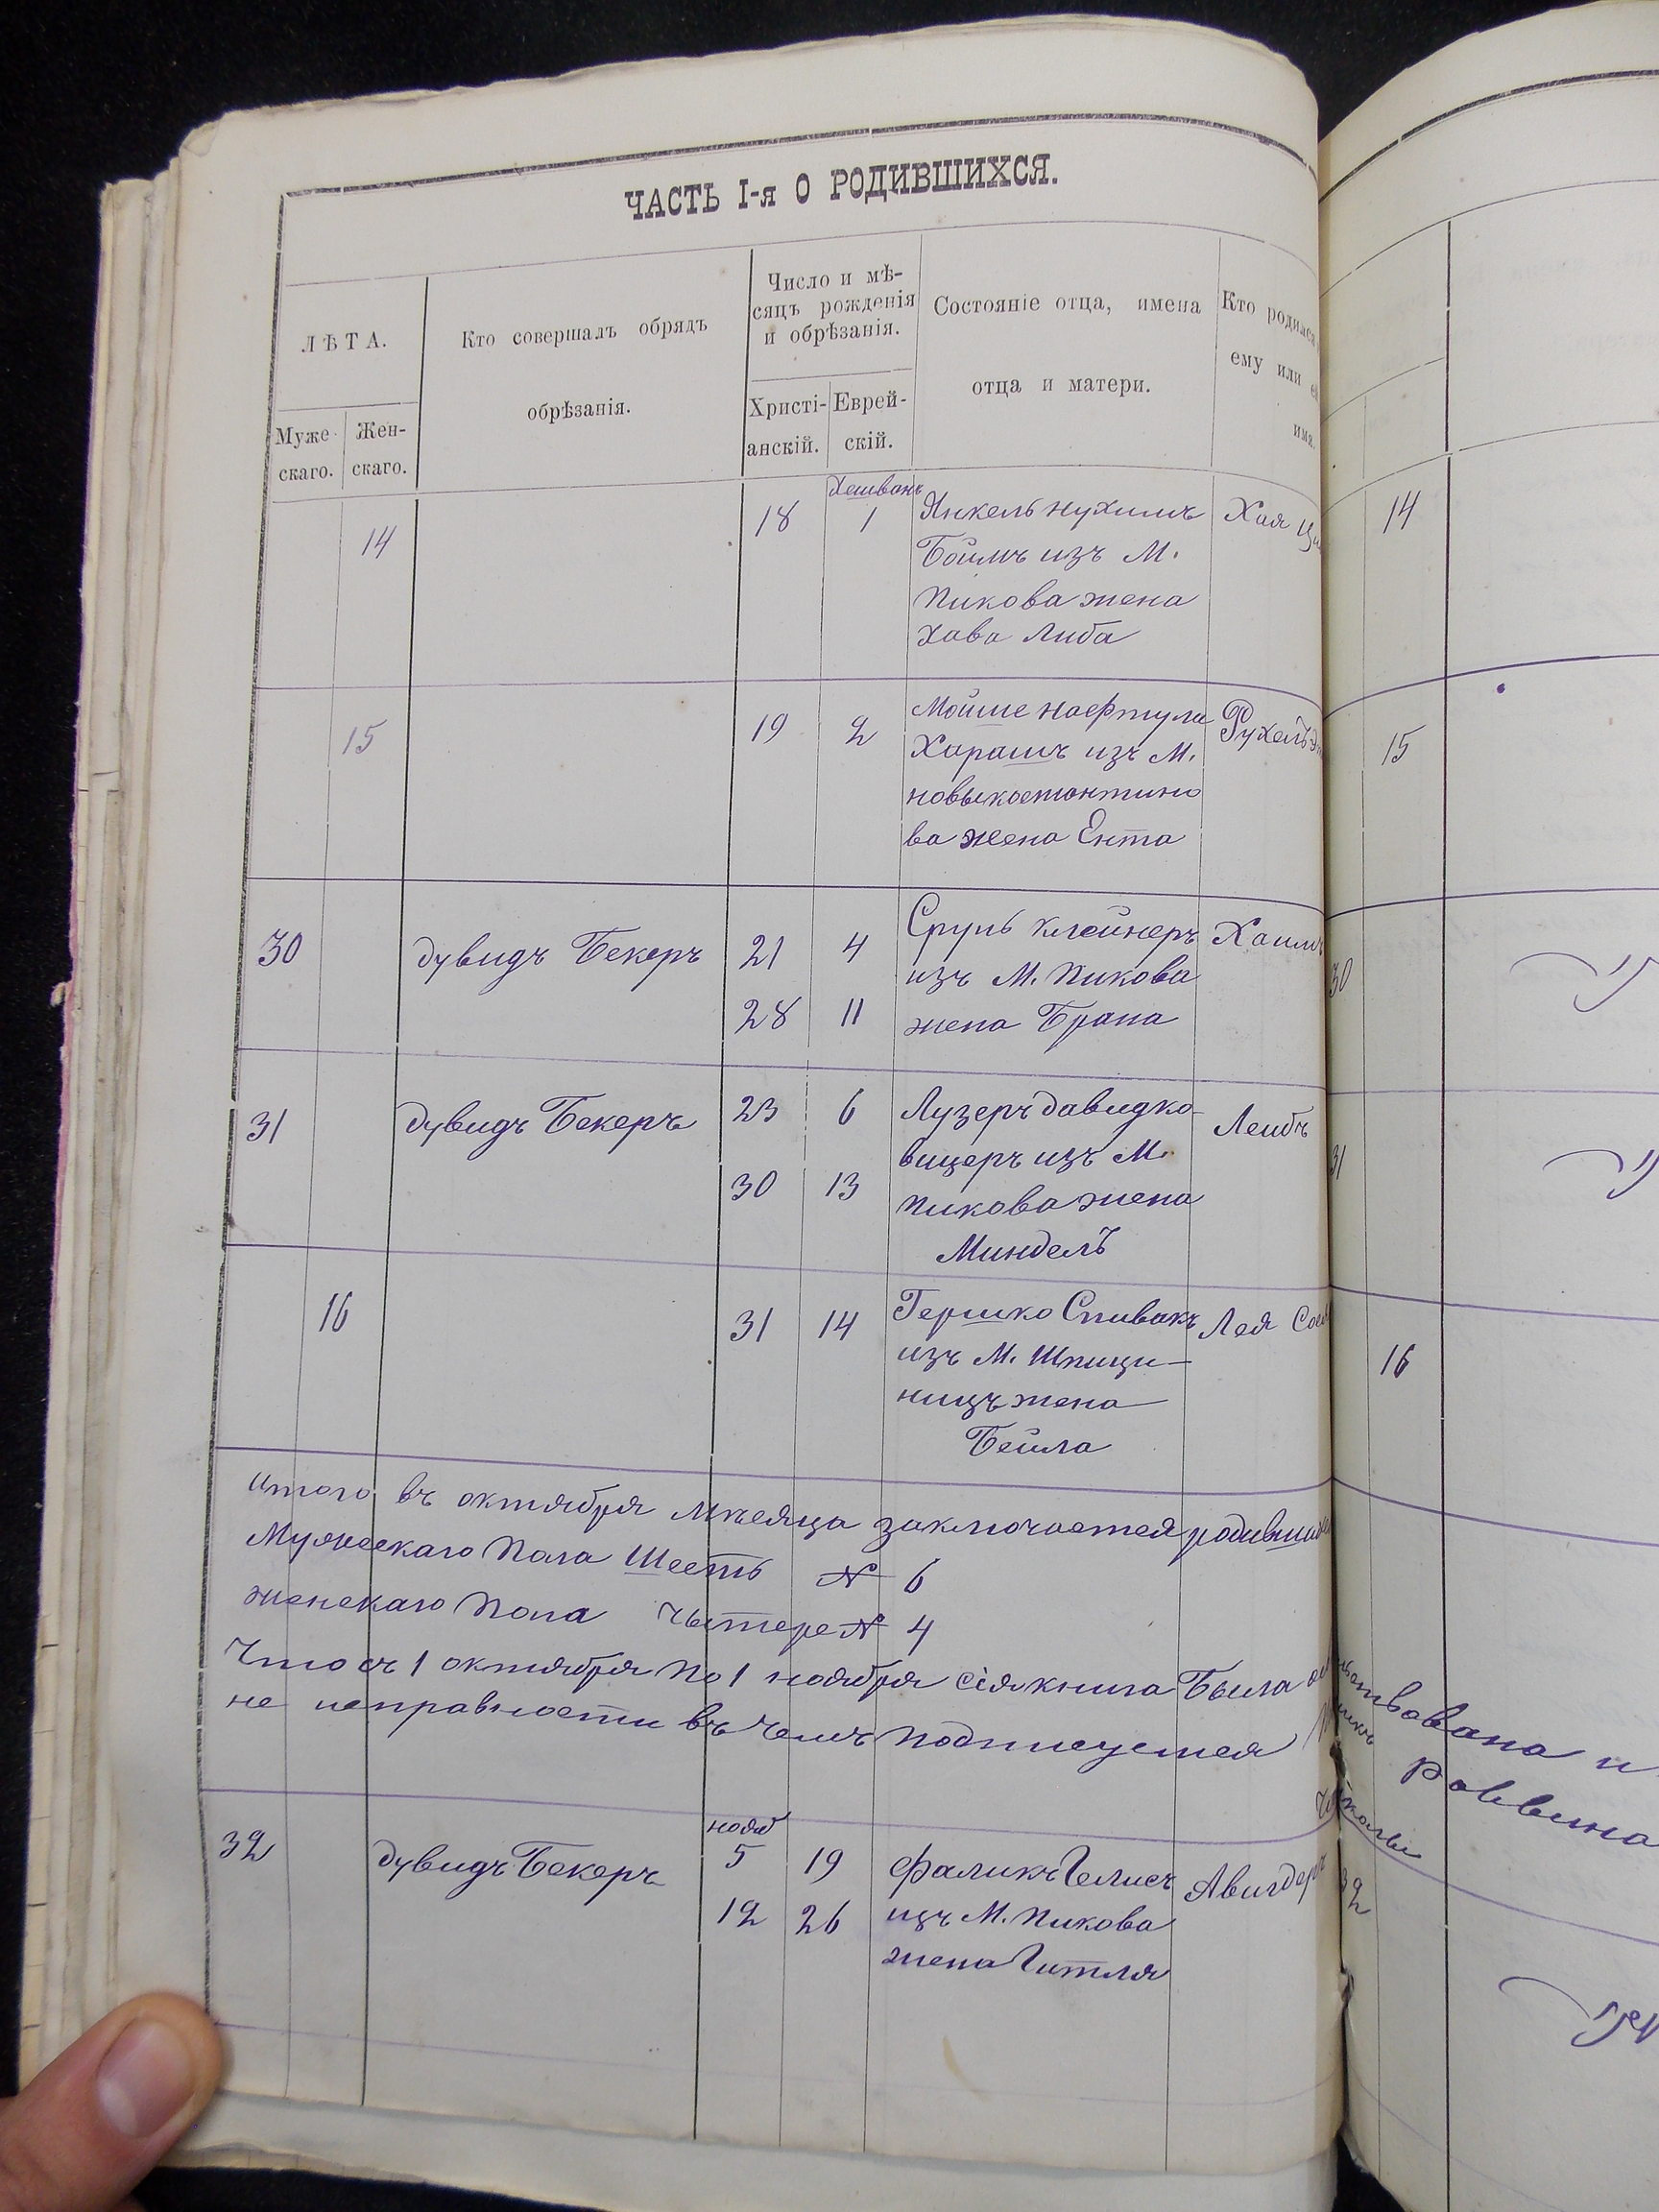 ЧАСТЬ I-я О РОДИВШИХСЯ.
ЛѢТА.
Муже-
скаго.
Жен-
скаго.
Кто совершалъ обрядъ
обрѣзанія.
Число и мѣ-
сяцъ рожденія
и обрѣзанія.
Христі-
анскій.
Еврей-
скій.
Состояніе отца, имена
отца и матери.
Кто родился
ему или
имя.
14
18
Хешванъ
1
Янкель Нухимъ
Боимъ изъ М.
Пикова жена
Хава Либа
Хая
14
15
19
2
Мойше Нафтула
Харашъ изъ М.
новыконстонтино
ва жена Ента
Рухель
15
30
дувидъ Бекеръ
21 4
28 11
Сруль Клейнеръ
изъ М. Пикова
жена Брана
Хаимъ
30
31
дувидъ Бекеръ
23 6
30 13
Лузеръ давидко-
вицеръ изъ М.
Пикова жена
Миндель
Леибъ
31
16
31 14
Гершко Спивакъ
изъ М. Шпици-
ницъ жена
Бейла
Лея
16
итого въ октября мѣсяца заключается родивших
Мужескаго Пола Шесть № 6
женскаго Пола Чытере № 4
Что съ 1 октября По 1 ноября сія книга Была
не исправности въ чемъ Подписуемся
Раввина
32
дувидъ Бекеръ
нояб
5 19
12 26
фаликъ Гелисъ
изъ М. Пикова
жена Гитля
Авигдеръ
32